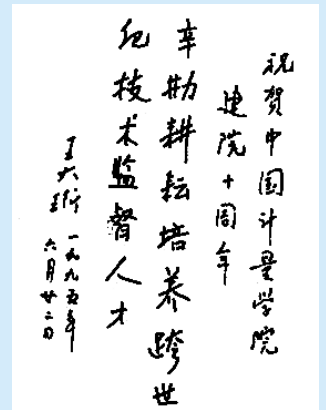 祝贺中国计量学院
建院十周年
辛勤耕耘培养跨世
纪技术监督人才
王大珩
一九九五年
六月廿二日